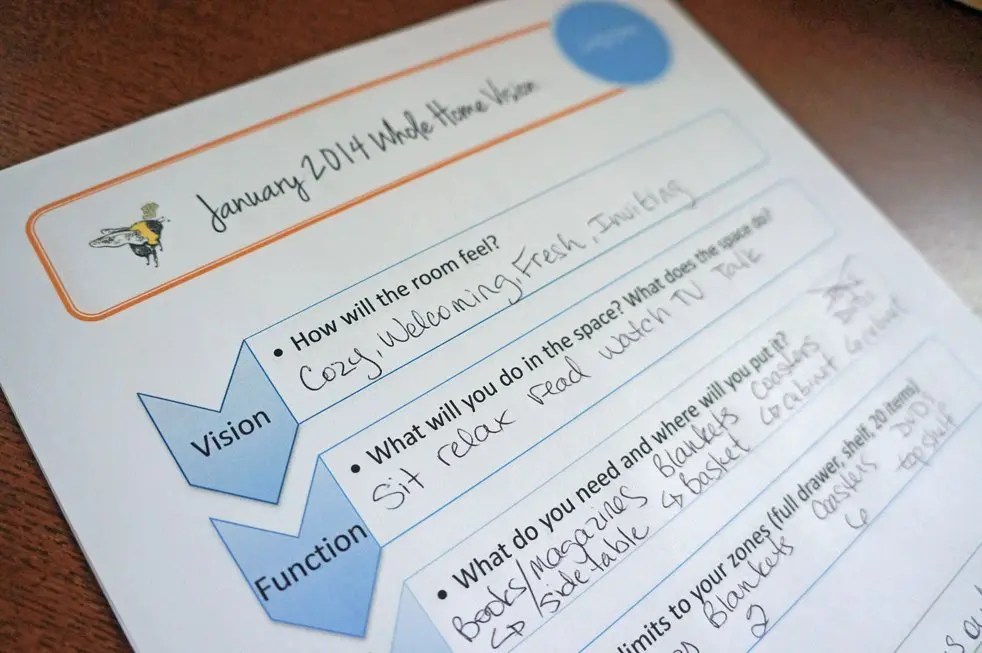 January 2014 Whole Home Vision
Vision
• How will the room feel?
Cozy, Welcoming, Fresh, Inviting
Function
• What will you do in the space? What does the space do?
Sit relax read watch TV Talk
• What do you need and where will you put it?
Books/Magazines Blankets Coasters
↳ /sidetable ↳ basket ↳ cabinet ↳ cabinet
limits to your zones (full drawer, shelf, 20 items)
Blankets Coasters DVDs
2 6 top shelf